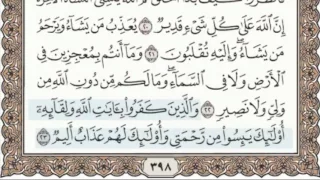 إِنَّ ٱللَّهَ عَلَىٰ كُلِّ شَىْءٍ قَدِيرٌ ٢٠ يُعَذِّبُ مَن يَشَآءُ وَيَرْحَمُ
مَن يَشَآءُ ۖ وَإِلَيْهِ تُقْلَبُونَ ٢١ وَمَآ أَنتُم بِمُعْجِزِينَ فِى
ٱلْأَرْضِ وَلَا فِى ٱلسَّمَآءِ ۖ وَمَا لَكُم مِّن دُونِ ٱللَّهِ مِن
وَلِىٍّ وَلَا نَصِيرٍ ٢٢ وَٱلَّذِينَ كَفَرُوا۟ بِـَٔايَـٰتِ ٱللَّهِ وَلِقَآئِهِۦٓ
أُو۟لَـٰٓئِكَ يَئِسُوا۟ مِن رَّحْمَتِى وَأُو۟لَـٰٓئِكَ لَهُمْ عَذَابٌ أَلِيمٌ ٢٣
٣٩٨